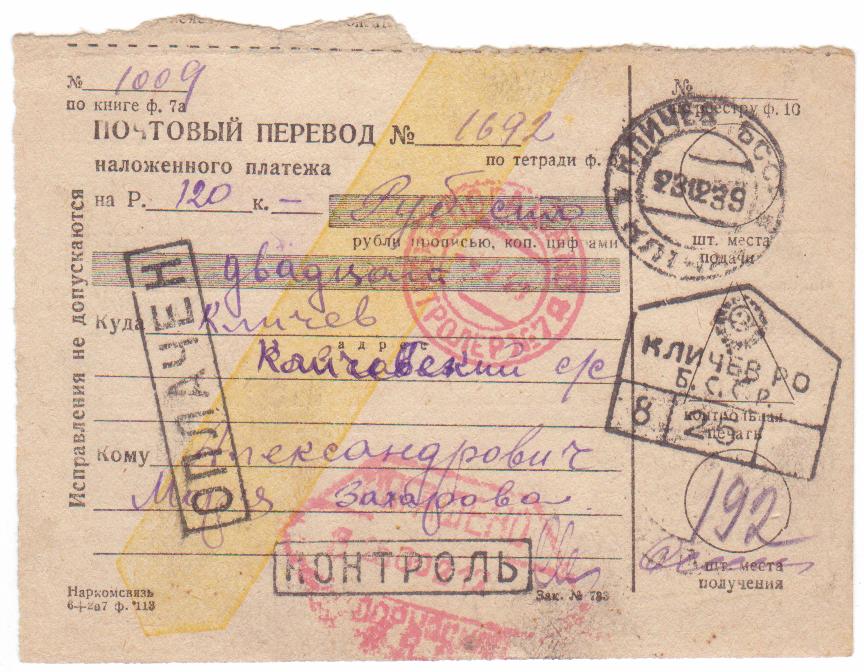 № 1009
по книге ф. 7а
ПОЧТОВЫЙ ПЕРЕВОД № 1692
наложенного платежа
по тетради ф.
на Р. 120 к. —
Руб сто
рубли прописью, коп. цифрами
двадцать
Куда Кличев
адрес
Кличевский с/с
Кому Александрович
Мария Захарова
Исправления не допускаются
ОПЛАЧЕН
КОНТРОЛЬ
Наркомсвязь
6+2в7 ф. 113
Зак. № 783
№
ф. 10
КЛИЧЕВ БССР
231239
шт. места
подачи
КЛИЧЕВ РО
Б.С.С.Р.
8 26
контрольная
печать
192
шт. места
получения